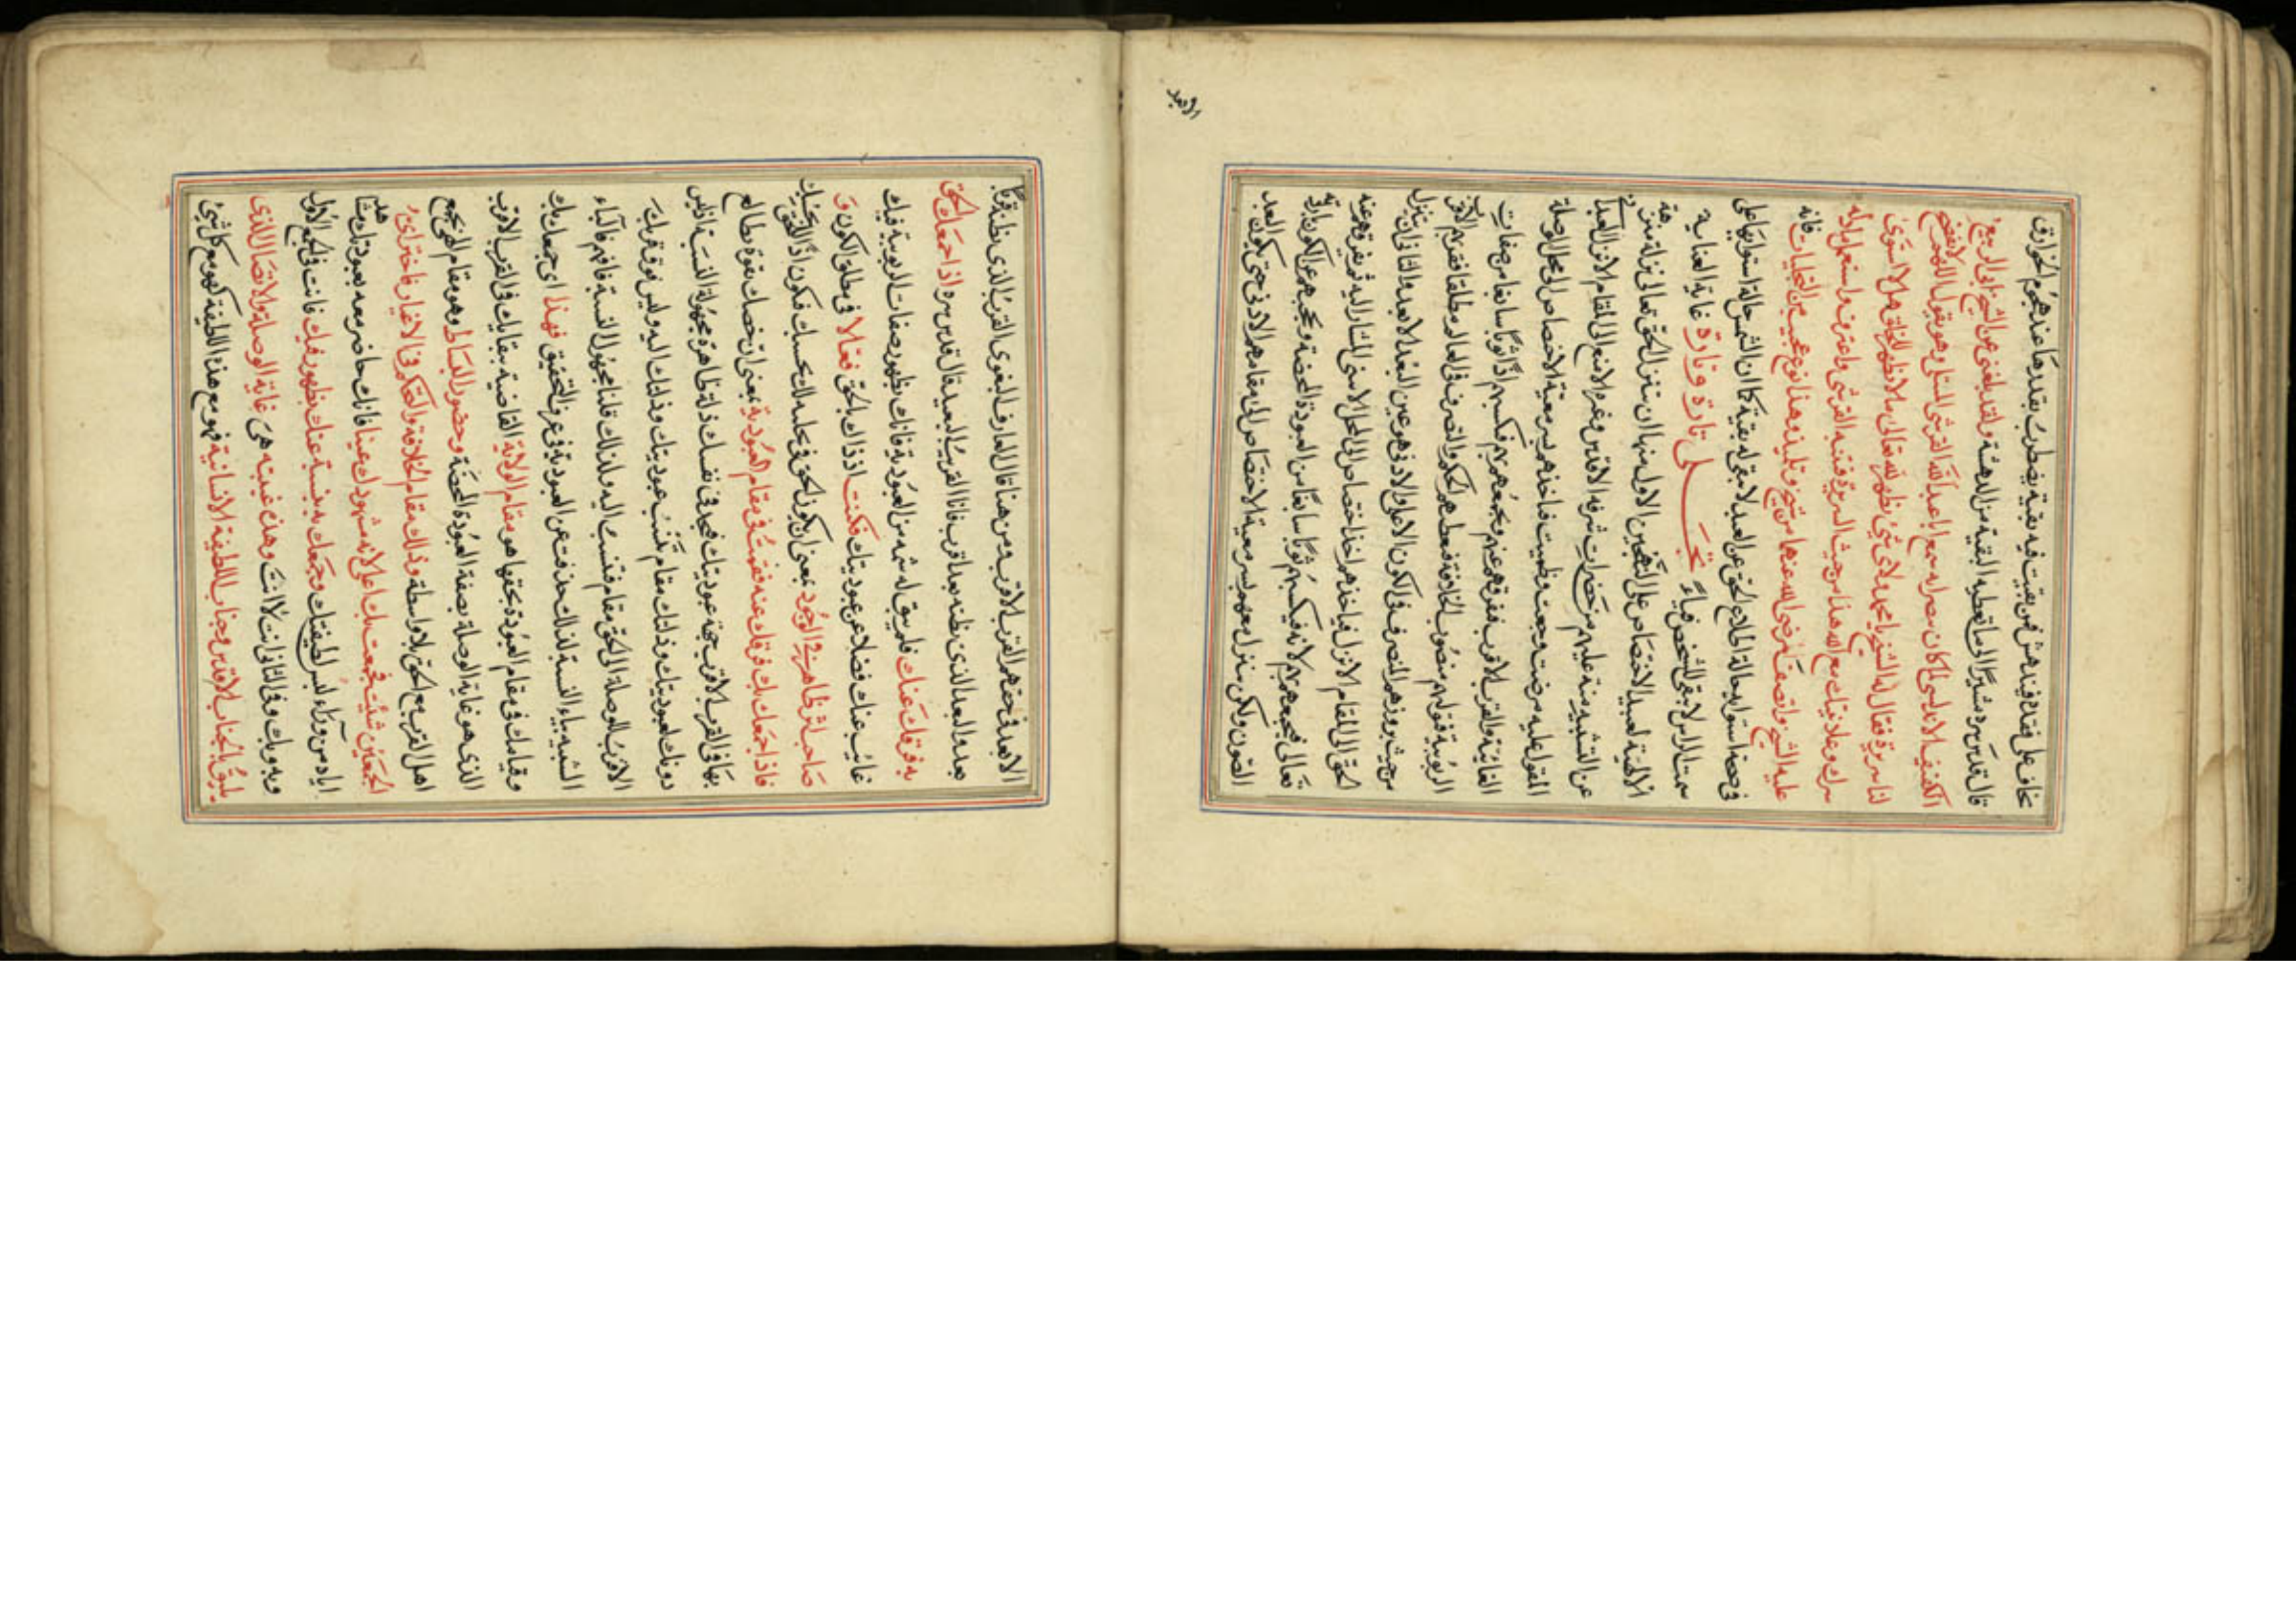 خاف على فقده فيدهش فمن بقيت فيه بقية يضطرب بقدرها عند هجوم الخوارق
قال قدس سره مشيرا الى ما تعطيه البقية من الدهشة ولقد بلغنى عن الشيخ ابى الربيع
الكفيف الاندلسى لما كان بمصر انه سمع ابا عبد الله القرشى المبتلى وهو يقول اللهم لا تفضح
لنا سريرة فقال له الشيخ يا محمد ولاى شئ تظهر لله تعالى ما لا تظهر للخلق هلا استوى
سرك وعلانيتك مع الله هذا من حيث السريرة فتنبه القرشى واعترف واستعمل ما دله
عليه الشيخ وانصف فرضى الله عنهما من شيخ وتلميذ وهذا نوع عجيب من التجليات فانه
فى حصة استوائه حالة اطلاع الحق عن العبد لا يبقى له بقية كما ان الشمس حالة استوائها على
سمت الراس لا يبقى للشخص فياء تجلى تارة وتارة غاية العناية
الالهية لعبيد الاختصاص على النحوين الاول منهما ان يتنزل الحق تعالى نزلة منزهة
عن التشبيه منة عليهم من حضرات شرفه الاقدس وعزه الامنع الى المقام الانزل
المقول عليه مرضت وجعت وظميت فياخذهم بسر معية الاختصاص الى محل الوصلة
الغائية والقرب الاقرب فيفرقهم عنهم ويجمعهم به فيكسبهم اذ ذاك ثوبا سابغا من صفات
الربوبية فتوليهم منصوب الخلافة فيعطيهم الحكم والتصرف فى العالم مطلقا فقربهم الاقرب
من حيث بروزهم للتصرف فى الكون الاعلى والادنى هو عين البعد الابعد والثانى ان يتنزل
الحق الى المقام الانزل فياخذهم اخذ اختصاص الى المحل الاسنى المشار اليه ثم يفرقهم عنه
تعالى فيجمعهم بهم لا به فيكسبهم ثوبا سابغا من العبودة المحضة ويحجبهم عن الكون
الصون ولكن يتنزل معهم بسر معية الاختصاص الى مقامهم الادنى حتى يكون البعد
الابعد
الابعد فى حقهم القرب الاقرب ومن هنا قال العارف البغوى القرب الذى تظنه قربا
بعد والبعد الذى تظنه بعدا قرب فانا القريب البعيد قال قدس سره اذا جمعك الحق
به فرقك عنك فلم يبق له شمه من العبودية فانك بظهور صفات الربوبية فيك
غائب عنك فضلا عن عبوديتك فكنت اذ ذاك بالحق فعالا فى مطلق الكون و
صاحب اثر ظاهر فى الوجود بمعنى ان يكون الحق فى محله لك بحسبك فتكون
فاذا جمعك بك فرقك عنه فقمت فى مقام العبودية بمعنى ان خصك بقوة تطالع
بها فى القرب الاقرب جهة عبوديتك فتجد فى نفسك ذلة ظاهرة مجهولة النسبة اذ ليس
دونك لعبوديتك وذلتك مقام تنسب عبوديتك وذلتك اليه وليس فوق قربك
الاقرب الوصلة الى الحق مقام فتنسب اليه ولذلك قلنا مجهول النسبة فافهم فالياء
الشبيه بياء النسبة لذلك حذفت عن العبودية فى عرف التحقيق فهذا اى جمعك بك
وقيامك فى مقام العبودة بحقها هو مقام الولاية القاضية ببقائك فى القرب الاقرب
الذى هو غاية الوصلة بصفة العبودة المحضة وحضور البساط وهو مقام الهى يجمع
اهل القرب مع الحق بلا واسطة وذلك مقام الخلافة والتحكم فى الاغيار فاختر اى
الجمعين شئت فجمعك بك اعلى لانه مشهودك عينا فانك حاضر معه بعبوديتك
اياه من وراء لبس لطيفتك وجمعك به غيبة عنك بظهوره فيك فانت فى الجمع الاول
وبه وبك وفى الثانى انت لا انت وهذه غيبة هى غاية الوصلة والاتصال الذى
يليق بالجناب الاقدس وجناب اللطيفة الانسانية فهو مع هذه اللطيفة كهو مع كل شئ